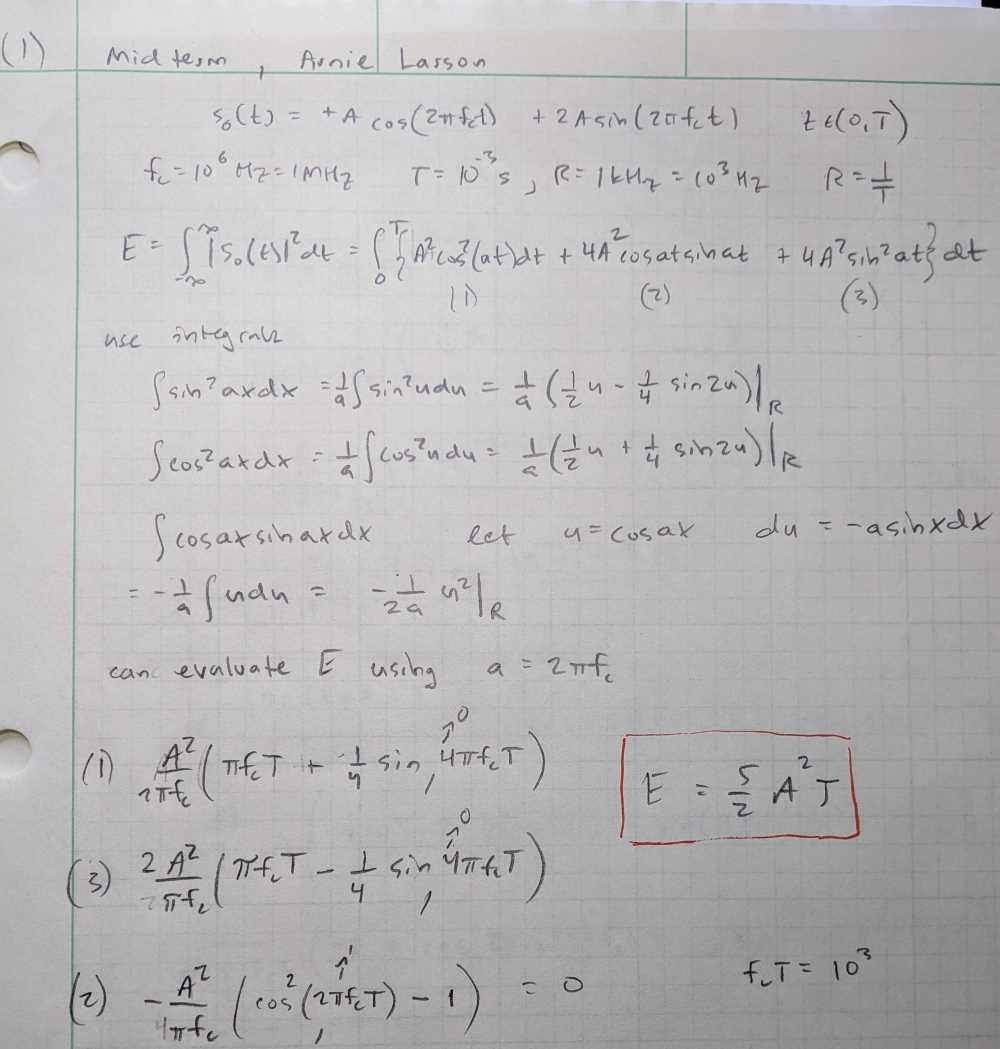 (1) Midterm, Arnie Larson
s₀(t) = +A cos(2πf_c t) + 2A sin(2πf_c t) t ∈ (0, T)
f_c = 10⁶ Hz = 1MHz T = 10⁻³ s, R = 1kHz = 10³ Hz R = 1/T
E = ∫_{-∞}^{∞} |s₀(t)|² dt = ∫_0^T {A² cos²(at)dt + 4A² cos at sin at + 4A² sin² at} dt
(1) (2) (3)
use integrals
∫ sin² ax dx = 1/a ∫ sin² u du = 1/a (1/2 u - 1/4 sin 2u)|_R
∫ cos² ax dx = 1/a ∫ cos² u du = 1/a (1/2 u + 1/4 sin 2u)|_R
∫ cos ax sin ax dx let u = cos ax du = -a sin x dx
= -1/a ∫ u du = -1/2a u²|_R
can evaluate E using a = 2πf_c
(1) A²/2πf_c (πf_c T + 1/4 sin 4πf_c T) ↗0
E = 5/2 A² T
(3) 2A²/πf_c (πf_c T - 1/4 sin 4πf_c T) ↗0
(2) -A²/4πf_c (cos² (2πf_c T) - 1) = 0 ↑1
f_c T = 10³